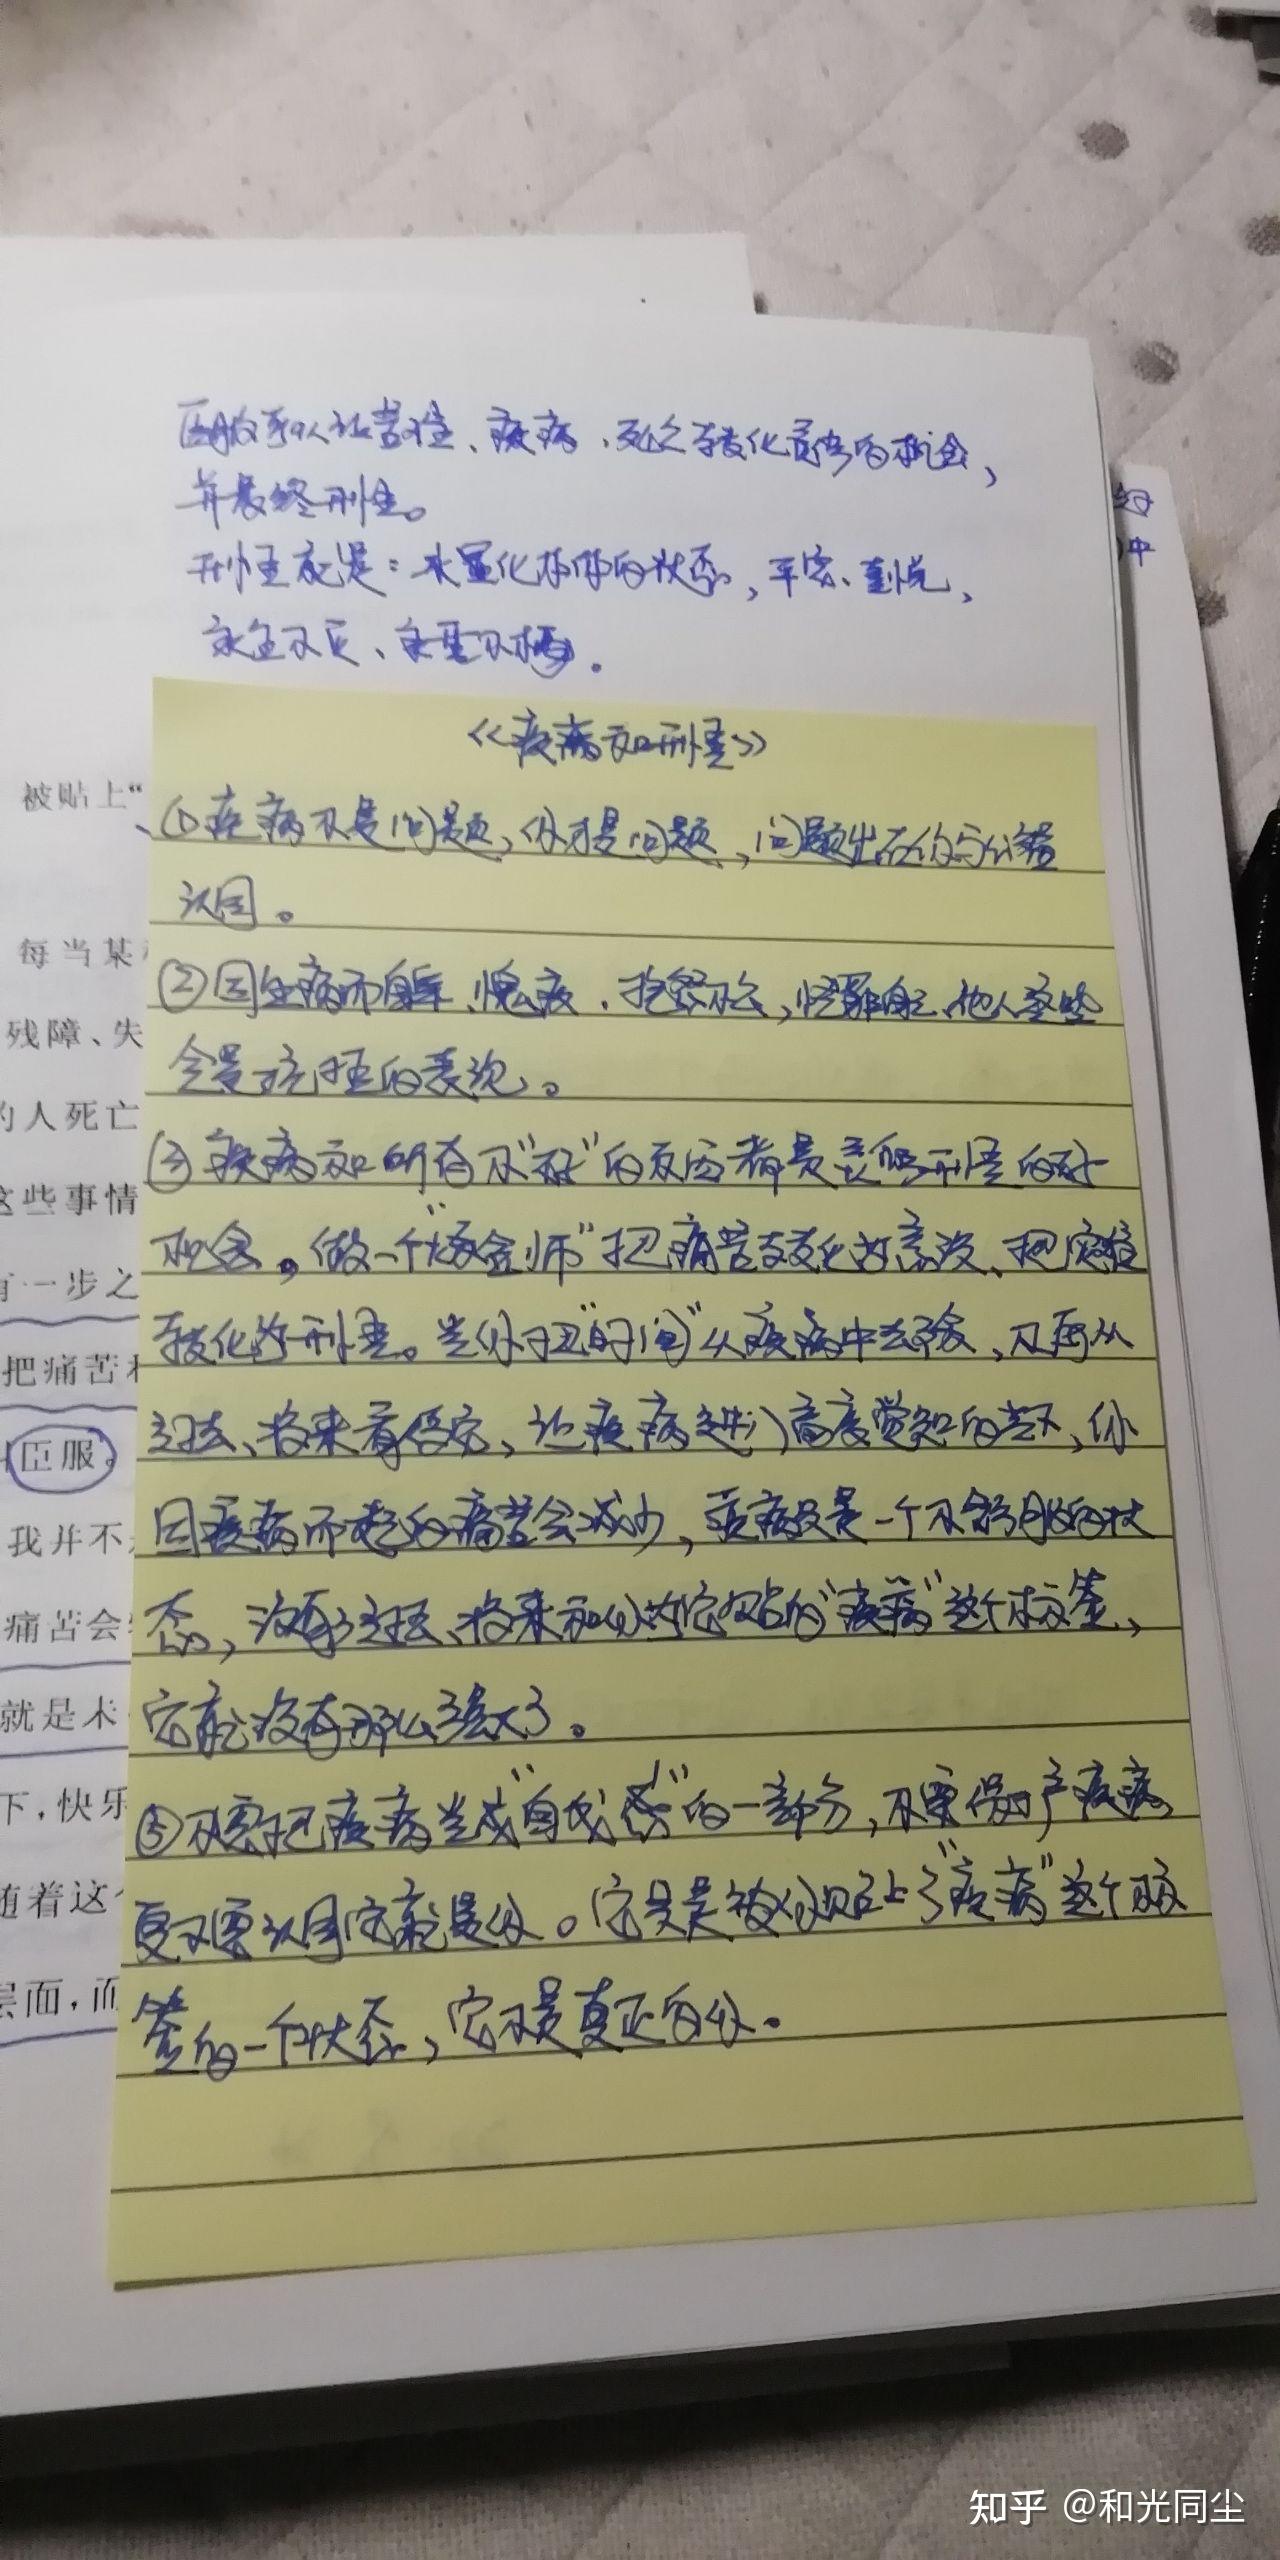 臣服可以让苦难、疾病、死亡转化意识的机会，
并最终开悟。
开悟就是：
《疾病和开悟》
①疾病不是问题，你才是问题，问题出在你与
认同。
②因生病而自卑、愧疚、抱怨不公，怪罪自己、他人
会是抗拒的表现。
③疾病和所有不“好”的反面都是开悟的好
机会。做一个“炼金师”把痛苦转化为意识、把灾难
转化为开悟。当你把“时间”从疾病中去除，不再从
过去、将来看待它，让疾病进行高度觉知的当下，你
因疾病而起的痛苦会减少，疾病只是一个不舒服的状
态，没有了过去、将来和你为它贴的“疾病”这个标签，
它就没有那么强大了。
⑤不要把疾病当成“自我感”的一部分，不要保护疾病
更不要认同它就是你。它只是被你贴上了“疾病”这个标
签的一个状态，它不是真正的你。
被贴上“
每当某
残障、失
的人死亡
这些事情
有一步之
把痛苦
臣服。
我并不
痛苦会
就是
下，快乐
随着这个
层面，而
好
中
知乎 @和光同尘